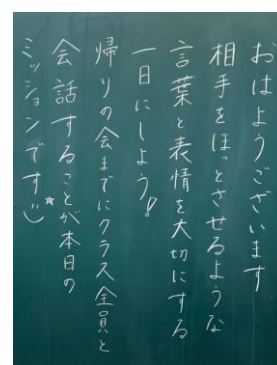 おはようございます
相手をほっとさせるような
言葉と表情を大切にする
一日にしよう!
帰りの会までにクラス全員と
会話することが本日の
ミッションです